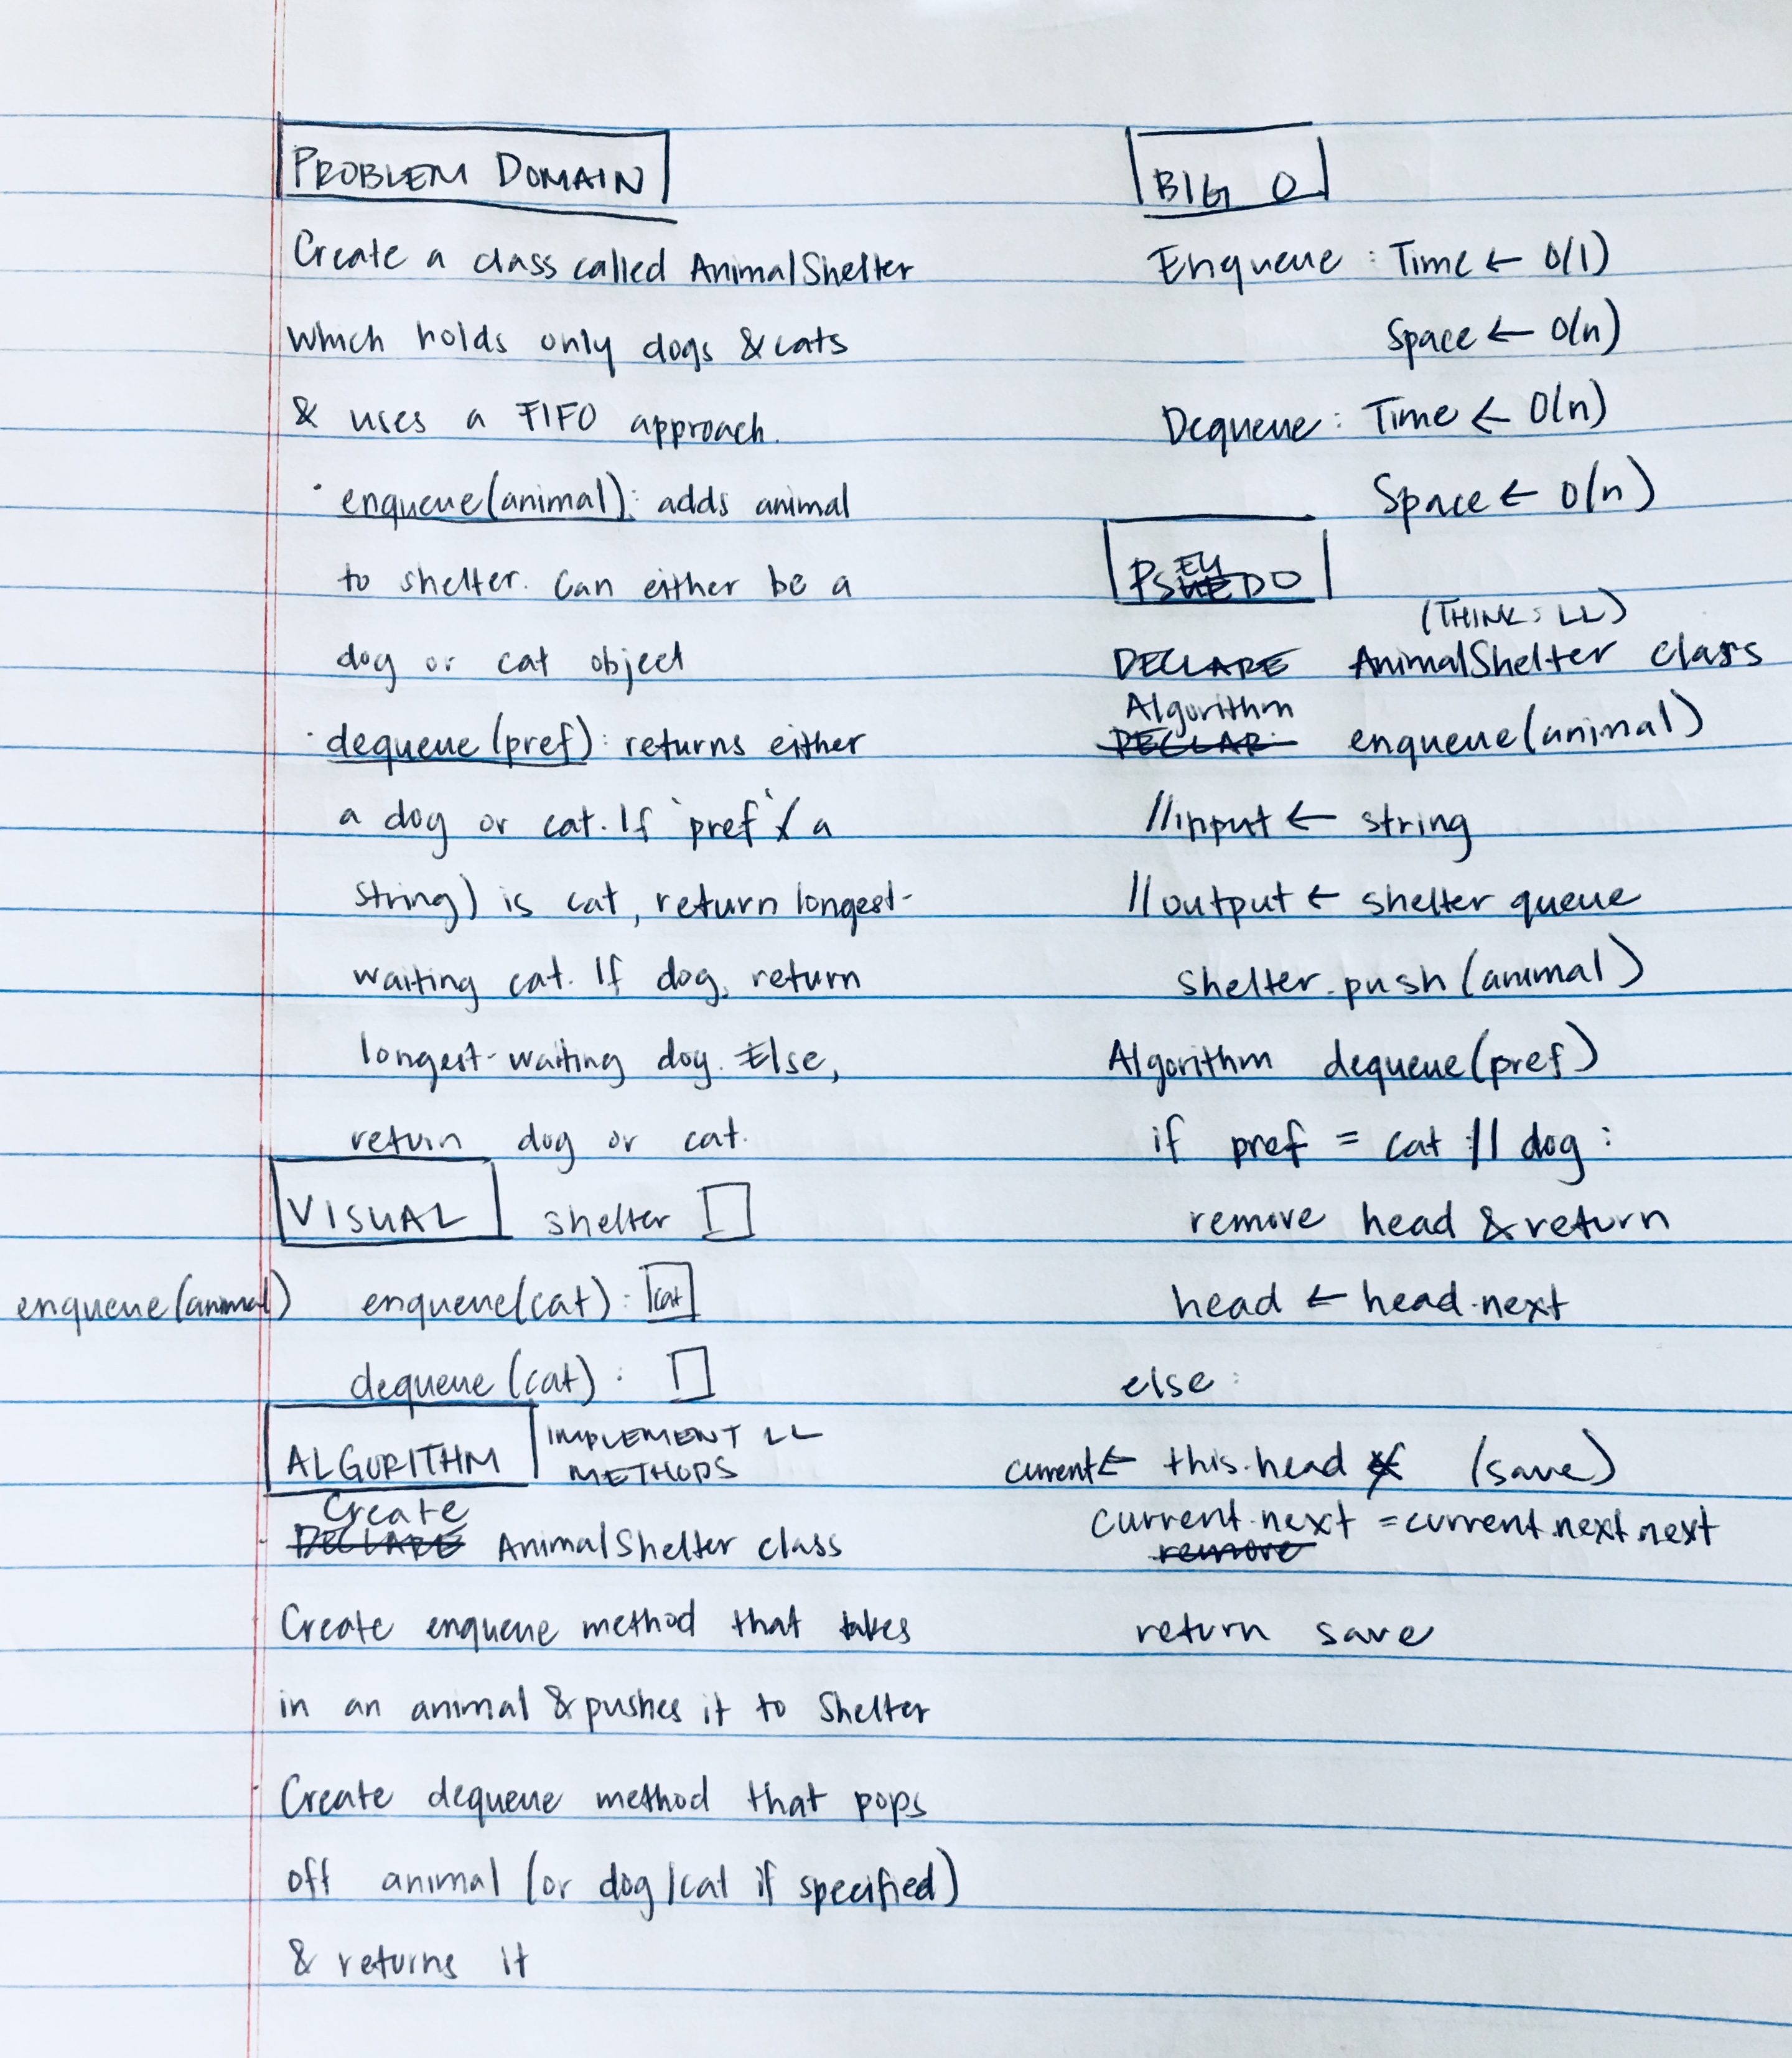 PROBLEM DOMAIN
Create a class called AnimalShelter
which holds only dogs & cats
& uses a FIFO approach.
· enqueue(animal): adds animal
to shelter. Can either be a
dog or cat object
· dequeue (pref): returns either
a dog or cat. If `pref` (a
string) is cat, return longest-
waiting cat. If dog, return
longest-waiting dog. Else,
return dog or cat.
VISUAL shelter
enqueue(animal) enqueue(cat): cat
dequeue (cat):
ALGORITHM IMPLEMENT LL
METHODS
Create
- DECLARE AnimalShelter class
· Create enqueue method that takes
in an animal & pushes it to Shelter
· Create dequeue method that pops
off animal (or dog/cat if specified)
& returns it
BIG O
Enqueue: Time ← O(1)
Space ← O(n)
Dequeue: Time ← O(n)
Space ← O(n)
PSEUDO
(THINK: LL)
DECLARE AnimalShelter class
Algorithm
DECLAR enqueue(animal)
//input ← string
//output ← shelter queue
shelter.push(animal)
Algorithm dequeue(pref)
if pref = cat || dog:
remove head & return
head ← head.next
else:
current ← this.head (save)
current.next = current.next.next
remove
return save